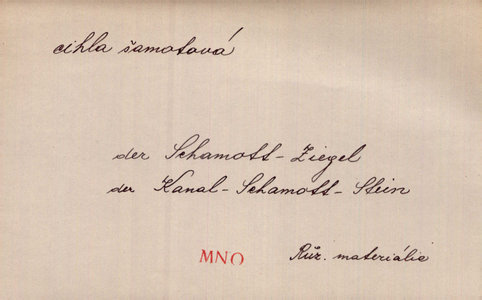 cihla šamotová
der Schamott-Ziegel
der Kanal-Schamott-Stein
MNO
Růz. materiálie